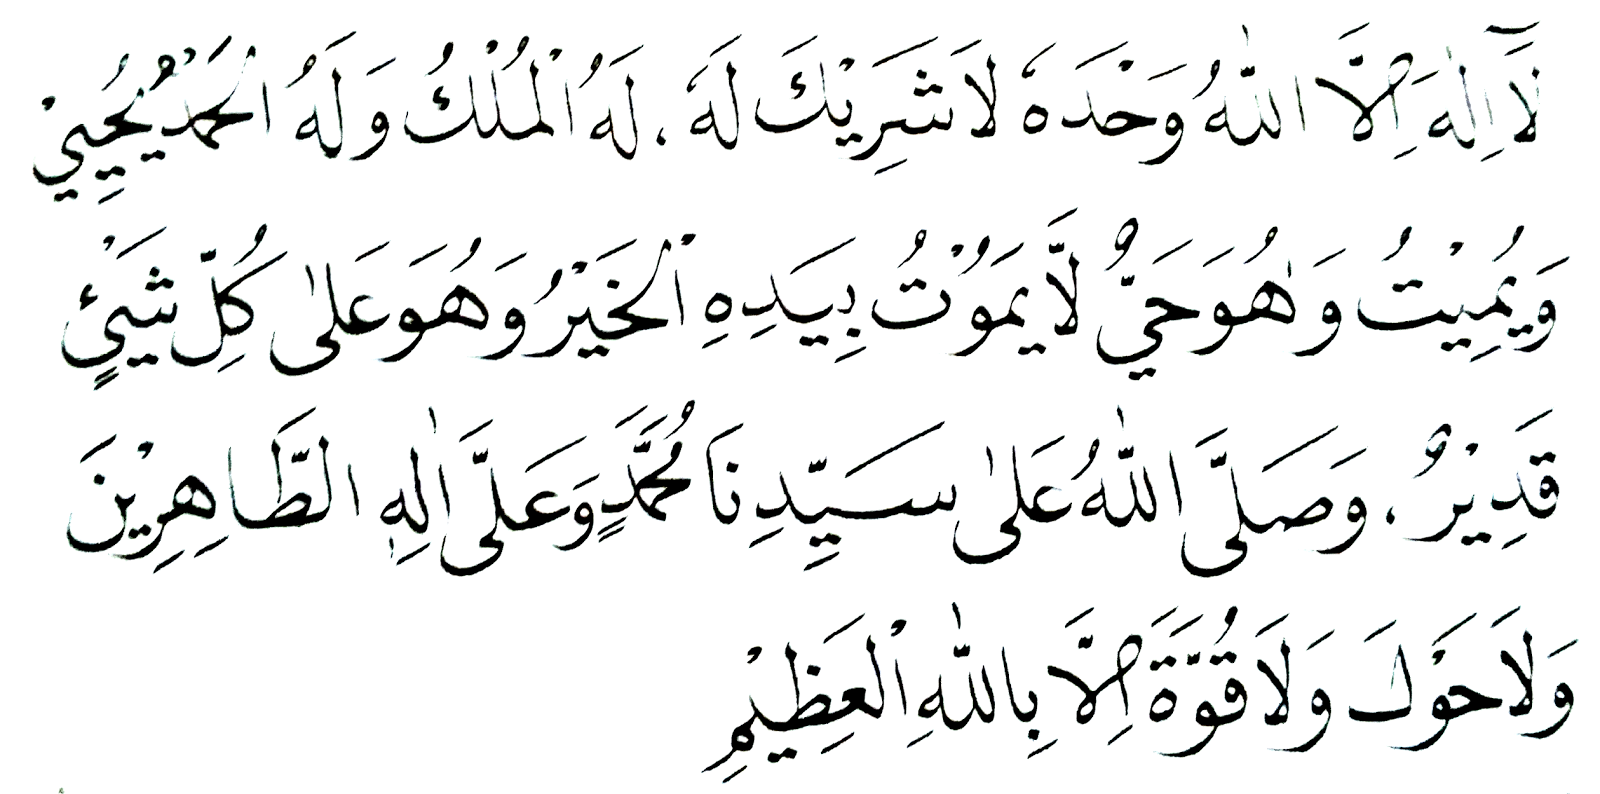 لَآ اِلٰهَ اِلَّا اللّٰهُ وَحْدَهٗ لَا شَرِيْكَ لَهٗ، لَهُ الْمُلْكُ وَلَهُ الْحَمْدُ يُحْيِيْ
وَيُمِيْتُ وَهُوَ حَيٌّ لَّا يَمُوْتُ بِيَدِهِ الْخَيْرُ وَهُوَ عَلٰى كُلِّ شَيْئٍ
قَدِيْرٌ، وَصَلَّى اللّٰهُ عَلٰى سَيِّدِنَا مُحَمَّدٍ وَعَلَّى اٰلِهٖ الطَّاهِرِيْنَ
وَلَا حَوْلَ وَلَا قُوَّةَ اِلَّا بِاللّٰهِ الْعَظِيْمِ